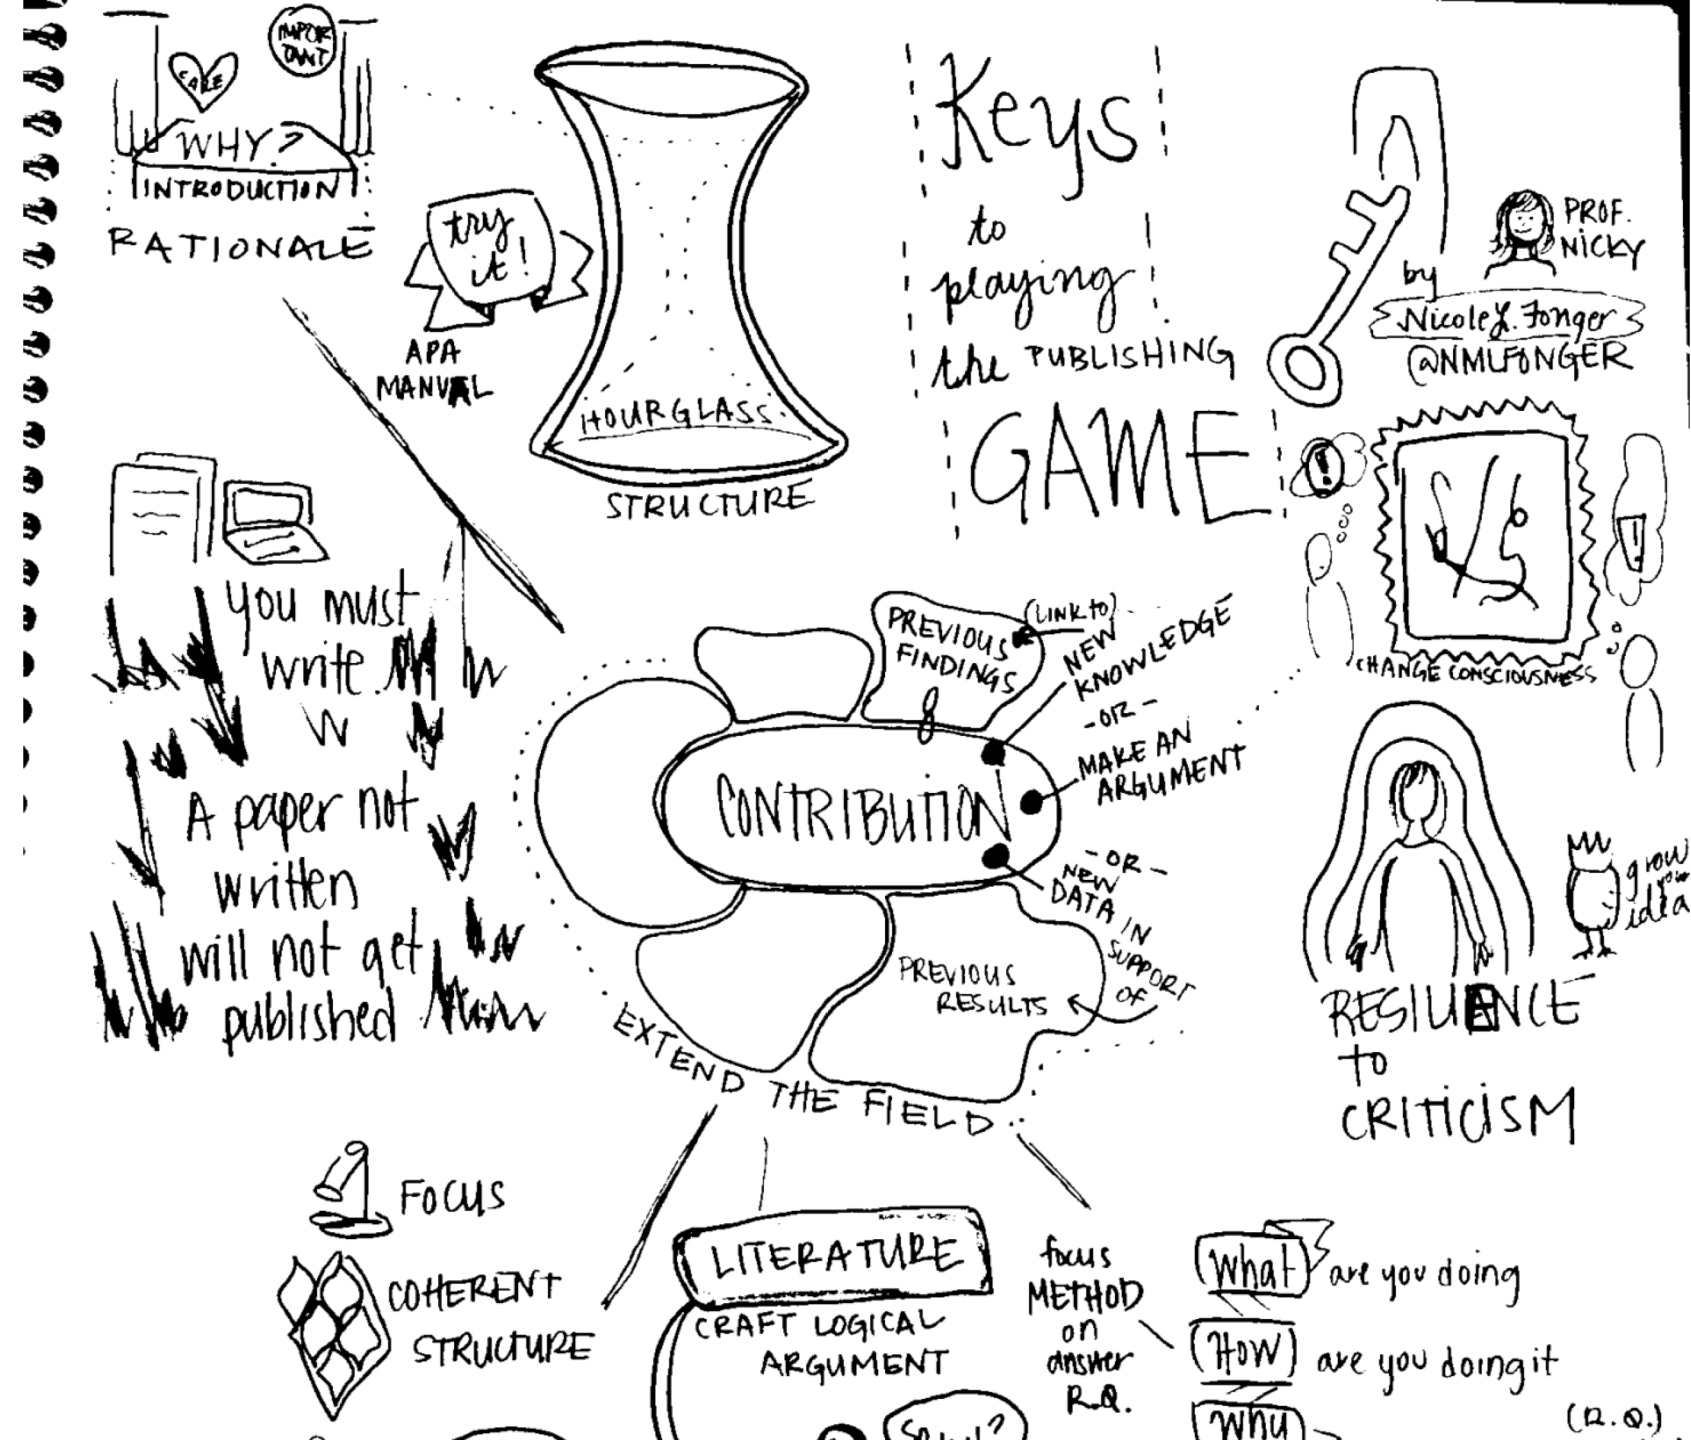 IMPOR
TANT
CARE
WHY?
INTRODUCTION
RATIONALE
try
it!
APA
MANUAL
HOURGLASS
STRUCTURE
Keys
to
playing
the PUBLISHING
GAME
PROF.
NICKY
by
Nicole L. Fonger
@NMLFONGER
CHANGE CONSCIOUSNESS
you must
write.
A paper not
written
will not get
published
PREVIOUS
FINDINGS
(LINK to)
NEW
KNOWLEDGE
-OR-
MAKE AN
ARGUMENT
CONTRIBUTION
-OR-
NEW
DATA IN
SUPPORT
OF
PREVIOUS
RESULTS
EXTEND THE FIELD
grow
your
idea
RESILIENCE
to
CRITICISM
FOCUS
COHERENT
STRUCTURE
LITERATURE
CRAFT LOGICAL
ARGUMENT
focus
METHOD
on
answer
R.Q.
What are you doing
How are you doing it
Why
(R.Q.)